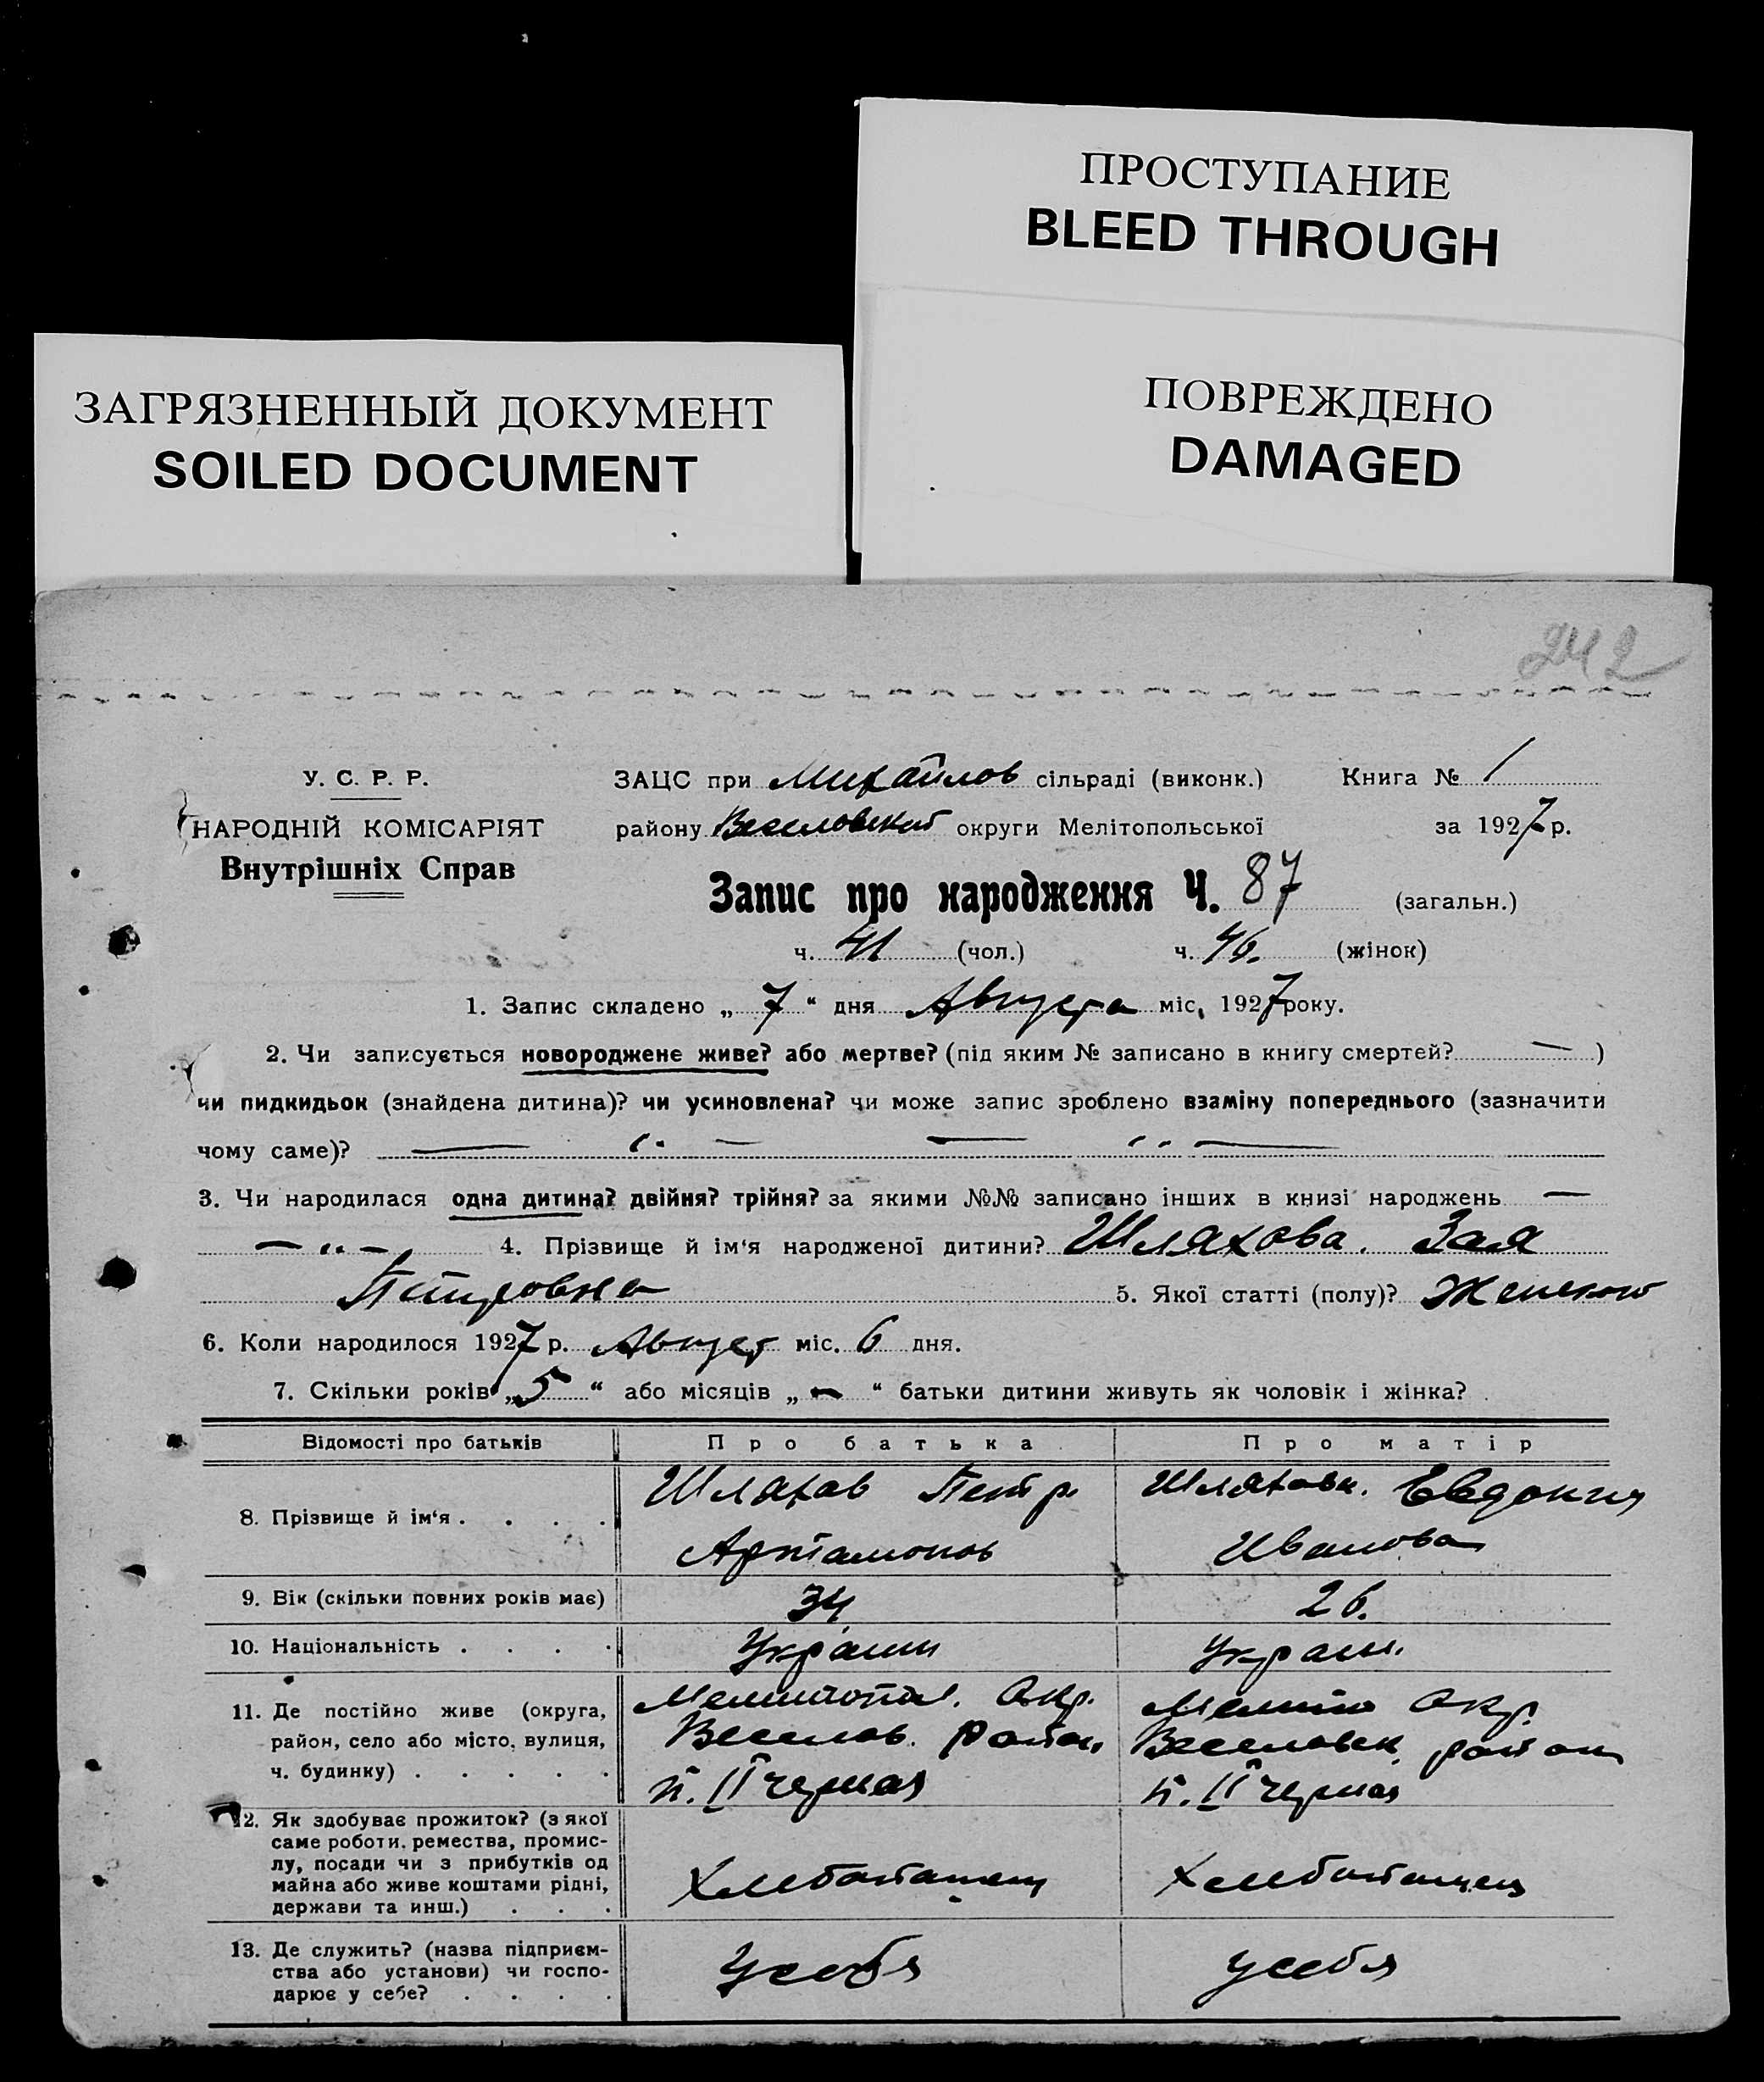 ПРОСТУПАНИЕ
BLEED THROUGH
ПОВРЕЖДЕНО
DAMAGED
ЗАГРЯЗНЕННЫЙ ДОКУМЕНТ
SOILED DOCUMENT
242
У. С. Р. Р.
НАРОДНІЙ КОМІСАРІЯТ
Внутрішніх Справ
ЗАЦС при Михайлов сільраді (виконк.) Книга № 1
району Веселовской округи Мелітопольської за 1927 р.
Запис про народження Ч. 87 (загальн.)
ч. 41 (чол.) ч. 46. (жінок)
1. Запис складено „ 7 “ дня Августа міс, 1927 року.
2. Чи записується новороджене живе? або мертве? (під яким № записано в книгу смертей? — )
чи пидкидьок (знайдена дитина)? чи усиновлена? чи може запис зроблено взаміну попереднього (зазначити
чому саме)? — „ — — „ —
3. Чи народилася одна дитина? двійня? трійня? за якими №№ записано інших в книзі народжень —
— „ — 4. Прізвище й ім‘я народженої дитини? Шляхова. Зоя
Петровна 5. Якої статті (полу)? Женской
6. Коли народилося 1927 р. Август міс. 6 дня.
7. Скільки років „ 5 “ або місяців „ — “ батьки дитини живуть як чоловік і жінка?
Відомості про батьків Про батька Про матір
8. Прізвище й ім‘я . . . . Шляхов Петр Шляхова. Евдокия
Артамонов Иванова
9. Вік (скільки повних років має) 34 26.
10. Національність . . . . Украин Украин.
11. Де постійно живе (округа, Мелитопол. Окр. Мелито Окр.
район, село або місто, вулиця, Веселов. район Веселовск район
ч. будинку) . . . . . п. II Черная п. II Черная
12. Як здобуває прожиток? (з якої
саме роботи, ремества, промис-
лу, посади чи з прибутків од
майна або живе коштами рідні, Хлебопашец Хлебопашец
держави та инш.) . . .
13. Де служить? (назва підприєм-
ства або установи) чи госпо- У себя У себя
дарює у себе? . . . .